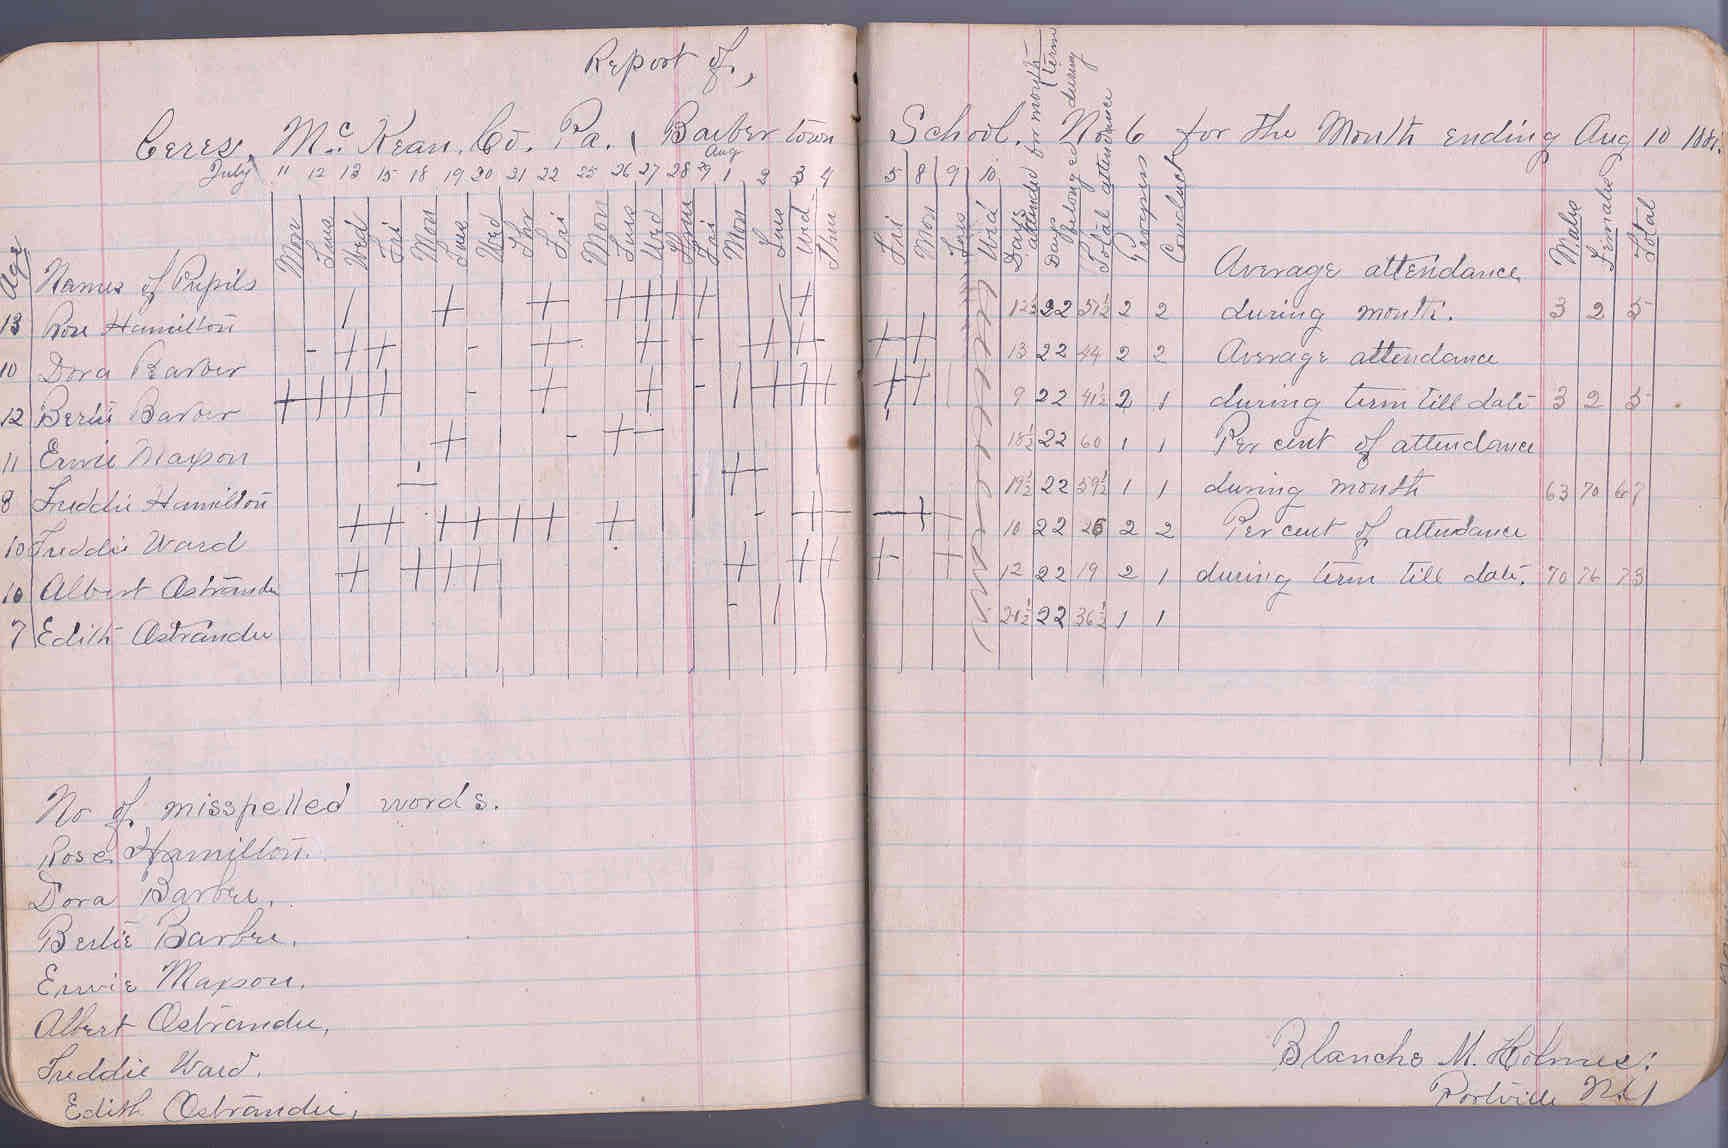 Report of,
Ceres, Mc. Kean, Co. Pa., Barbertown School. No 6 for the Month ending Aug 10 1881.
July 11 12 13 15 18 19 20 21 22 25 26 27 28 29 Aug 1 2 3 4 5 8 9 10
Age Names of Pupils Mon Tues Wed Fri Mon Tues Wed Thr Fri Mon Tues Wed Thur Fri Mon Tues Wed Thur Fri Mon Tues Wed Days attended for month Days belonged during term Total attendance Progress Conduct Average attendance Males Females Total
13 Rose Hamilton 12½ 22 51½ 2 2 during month. 3 2 5
10 Dora Barber 13 22 44 2 2 Average attendance
12 Bertie Barber 9 22 41½ 2 1 during term till date 3 2 5
11 Ernie Maxson 18½ 22 60 1 1 Per cent of attendance
8 Freddie Hamilton 19½ 22 59½ 1 1 during month 63 70 67
10 Freddie Ward 10 22 26 2 2 Per cent of attendance
10 Albert Ostrander 12 22 19 2 1 during term till date. 70 76 73
7 Edith Ostrander 21½ 22 36½ 1 1
No of misspelled words.
Rose Hamilton.
Dora Barber.
Bertie Barber.
Ernie Maxson.
Albert Ostrander,
Freddie Ward.
Edith Ostrander,
Blanche M. Holmes.
Portville N.Y